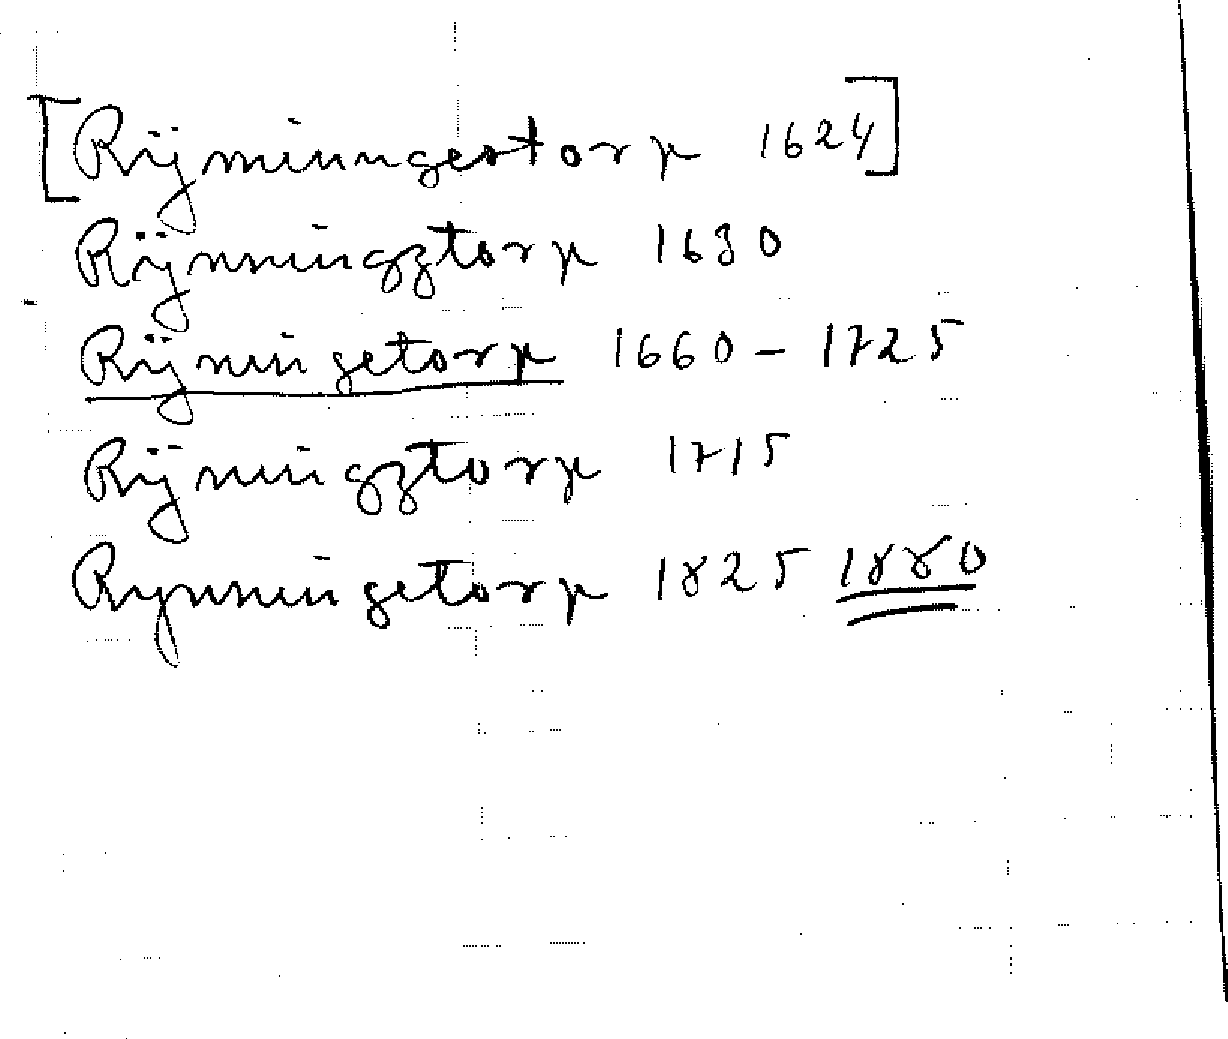 [Rÿminngestorp 1624]
Rÿnningztorp 1630
Rÿningetorp 1660 – 1725
Rÿningztorp 1715
Rynningetorp 1825 1880